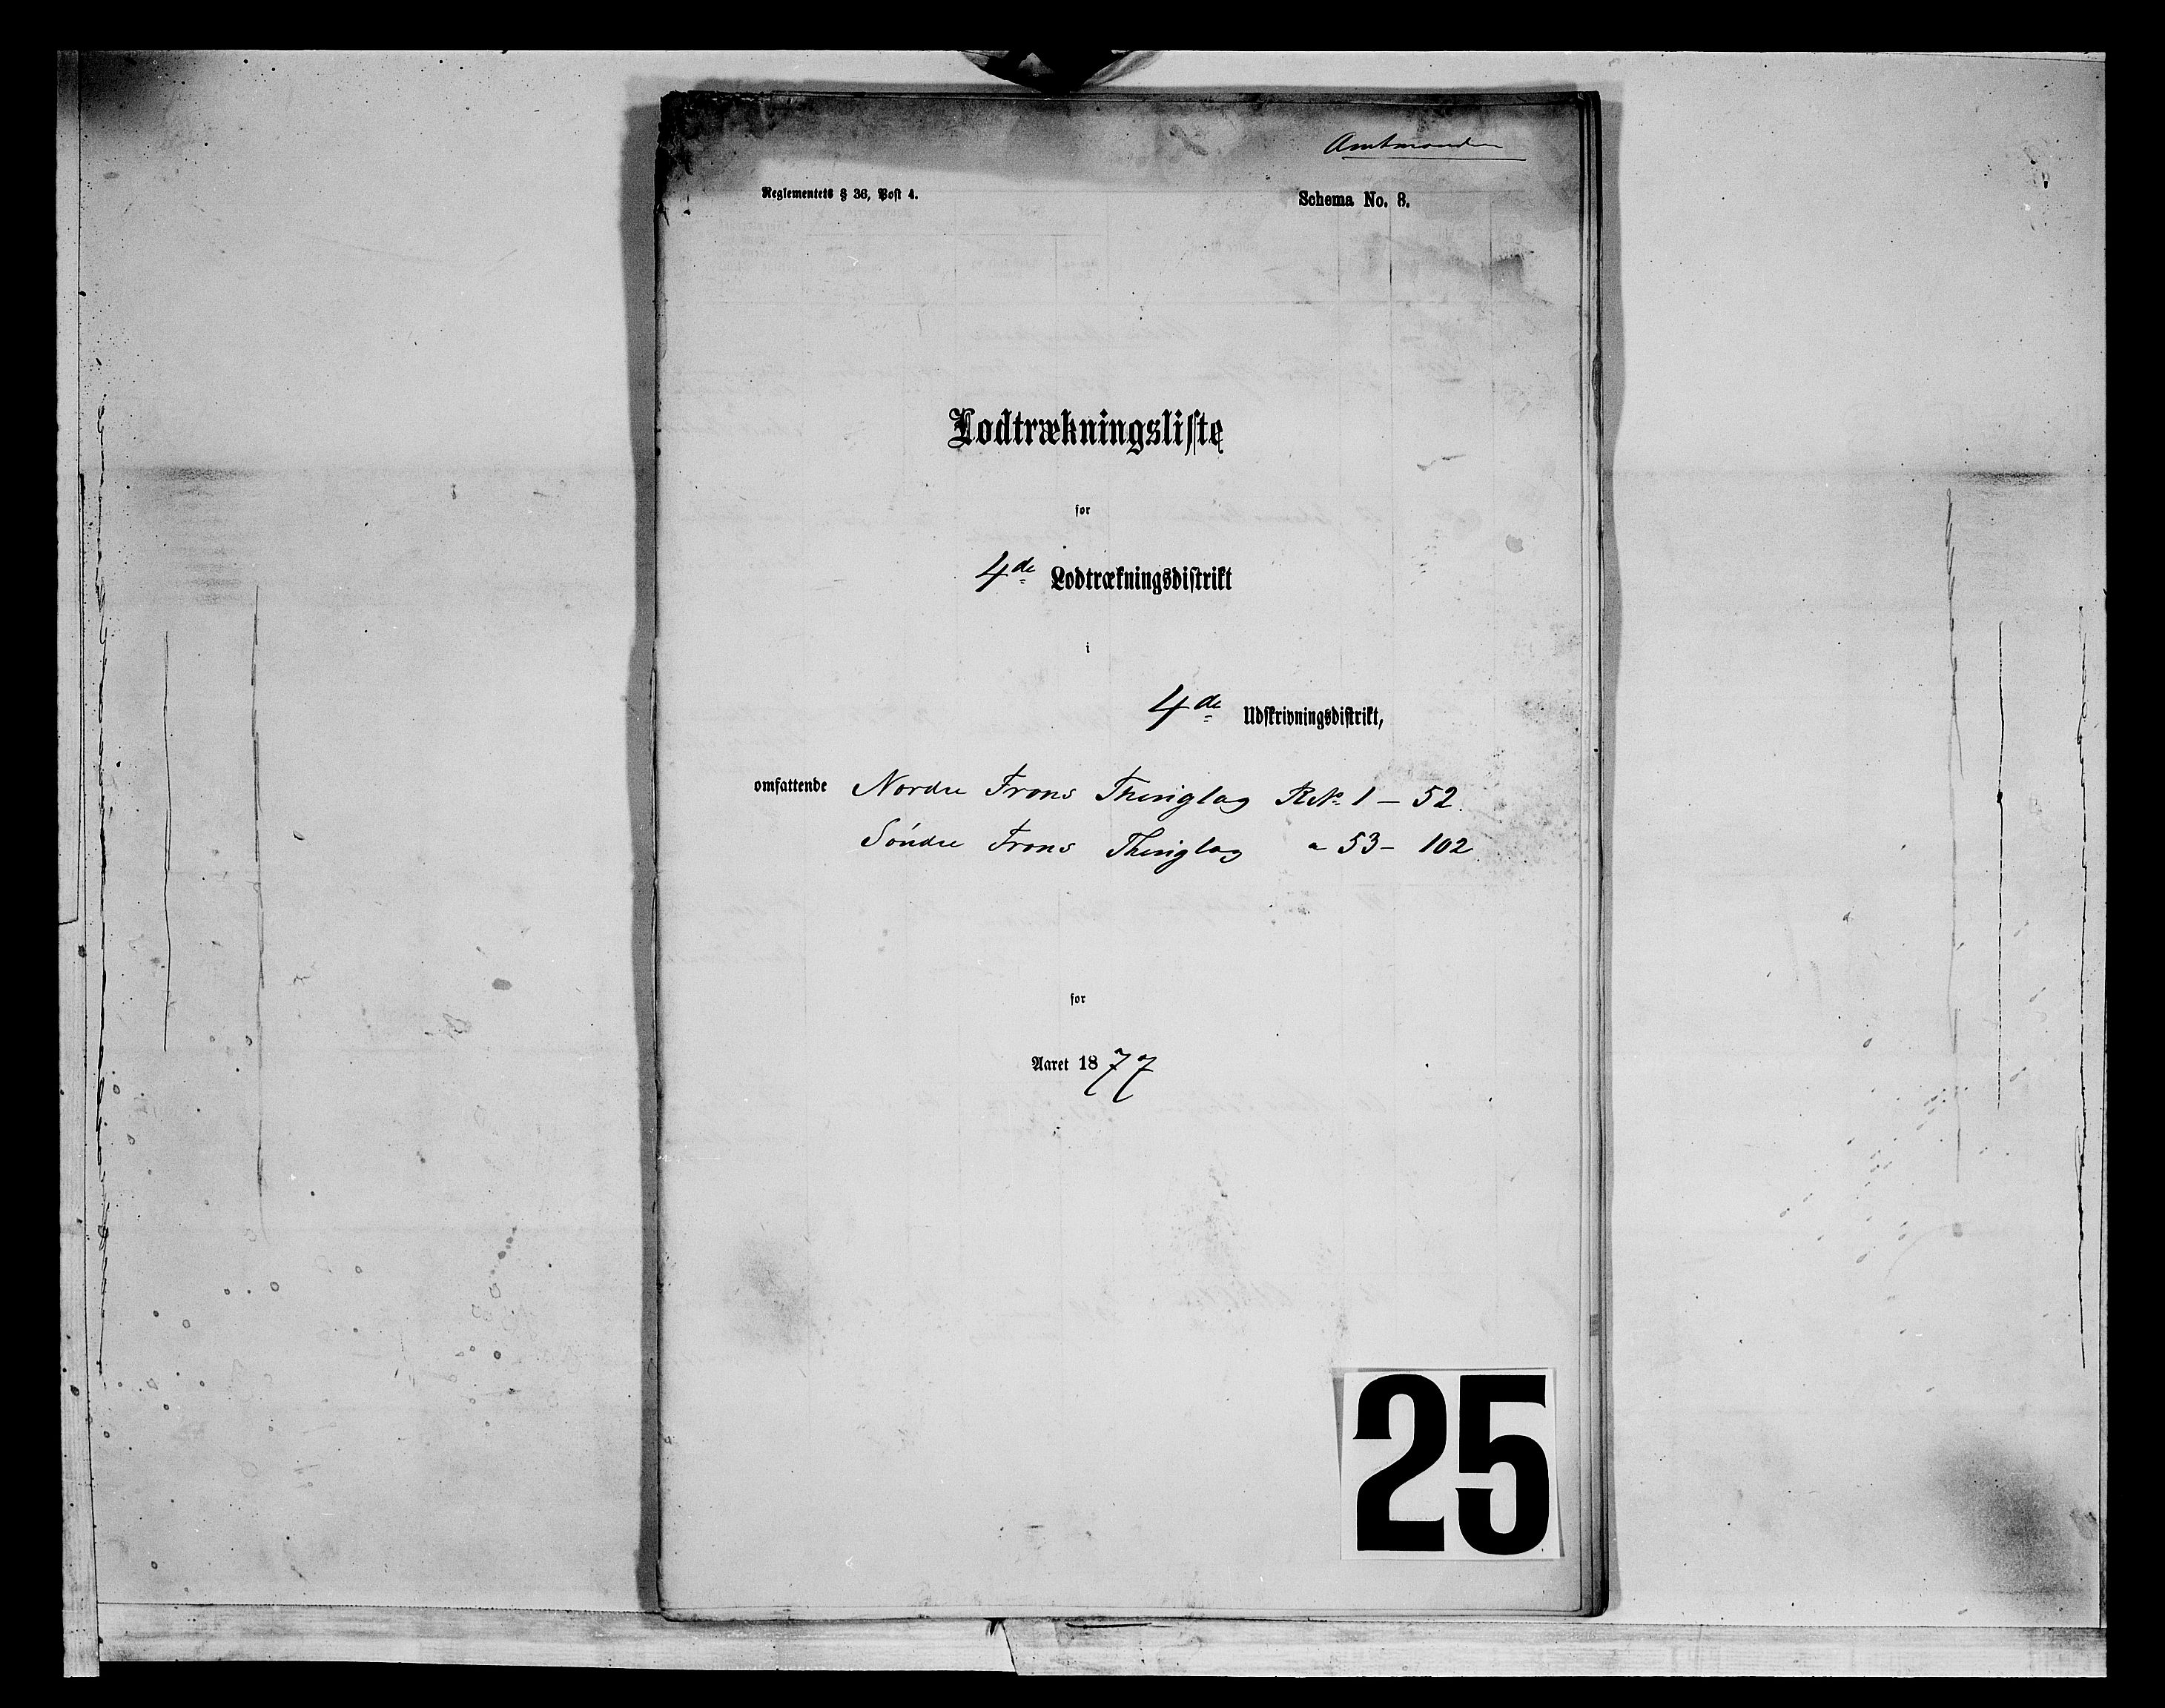 Amtmanden
Reglementets § 36, Post 4.
Schema No. 8.
Lodtrækningsliste
for
4de Lodtrækningsdistrikt
i
4de Udskrivningsdistrikt,
omfattende Nordre Frons Thinglag RNo. 1 – 52.
Söndre Frons Thinglag " 53 – 102.
for
Aaret 1877
25